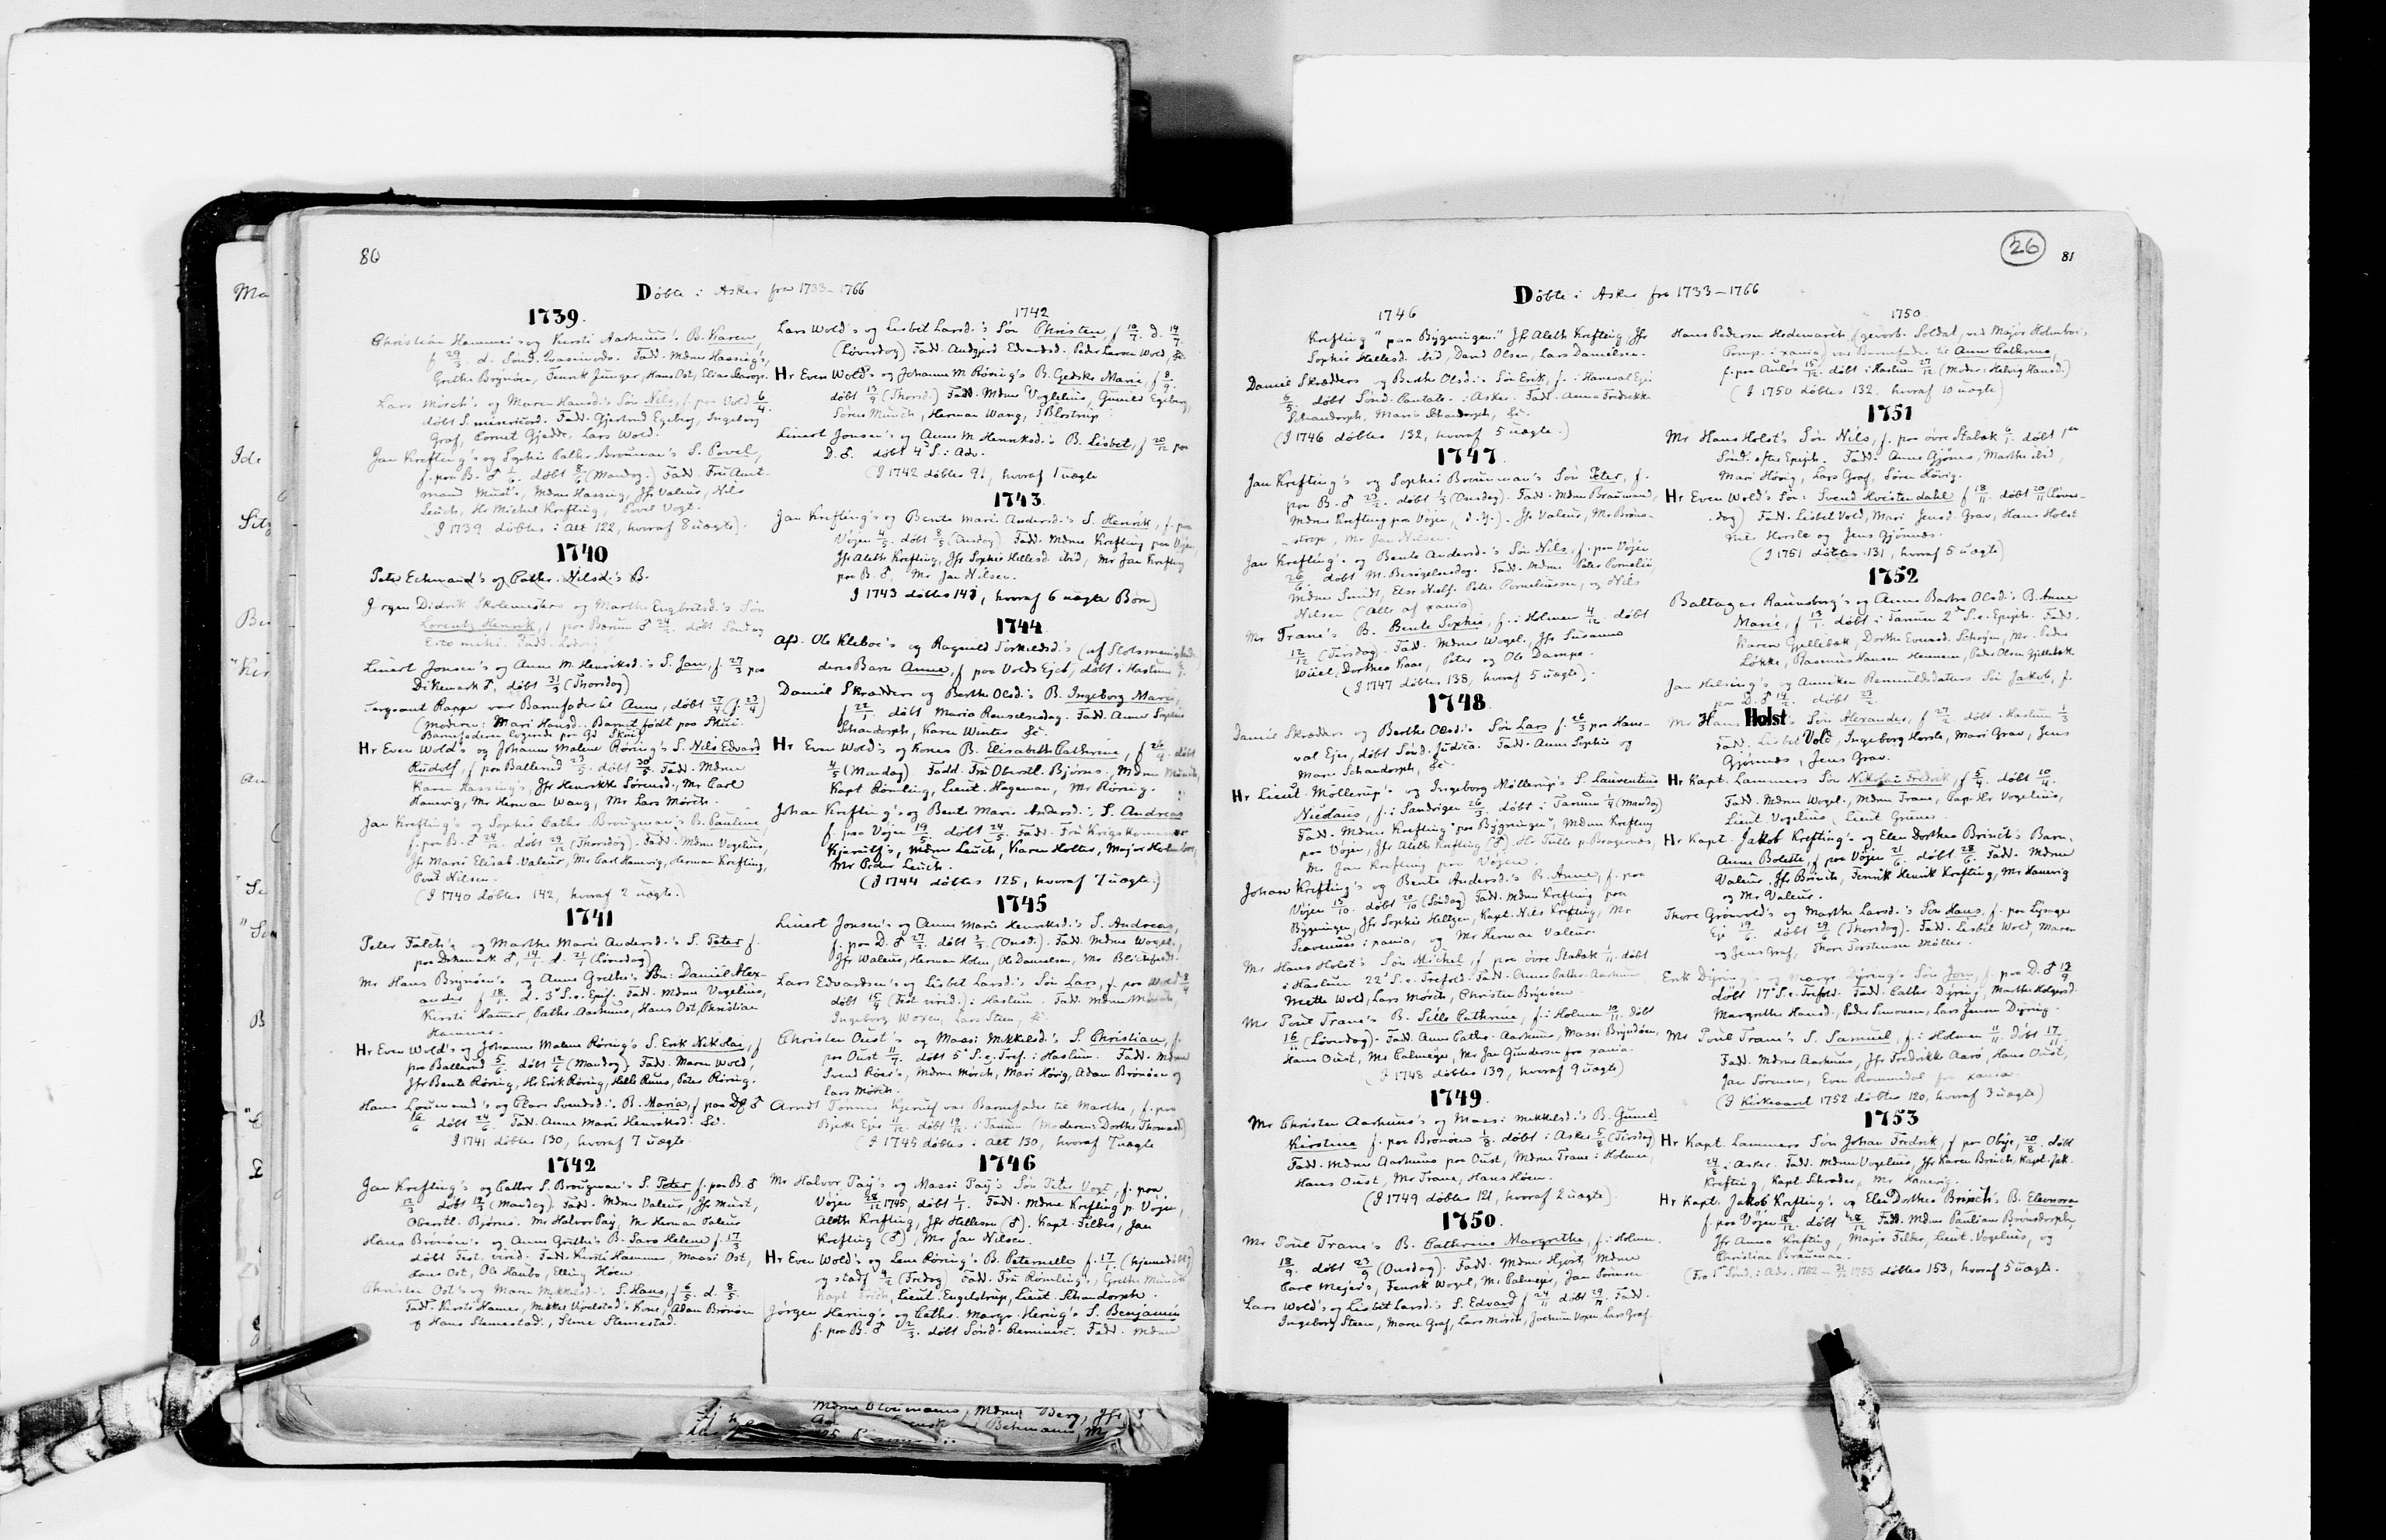 80
Döbte i Asker fra 1733–1766
1739.
Christian Hammer's og Kirsti Aarhuus's B. Karen,
f. 29/3. d. Sönd. Qvasimodo. Fadd. Mdme Hassing's,
Grethe Brynöen, Fenrik Junger, Hans Ost, Elias
Lars Mörch's og Maren Hansd.'s Sön Nils, f. paa Vold 6/4.
döbt S. misericord. Fadd. Gjertrud Egeberg, Ingeborg
Graf, Cornet Gjedde, Lars Wold.
Jan Krefting's og Sophie Cathr. Brouman's S. Povel,
f. paa B. ♂ 1/6. döbt 8/6 (Mandag.) Fadd. Fru Amt-
mand Must's, Mdme Hassing, Jfr Valeur, Nils
Leuch, Hr Michel Krefting, Povel Vogt.
(I 1739 döbtes i Alt 122, hvoraf 8 uægte).
1740
Peter Eckmand's og Cathr. Nilsd.'s B.
Jörgen Didrik Skolemesters og Marthe Engbretsd.'s Sön
Lorentz Henrik, f. paa Bærum ♂ 24/2. döbt Söndag
Esto mihi. Fadd.
Linert Jonsen's og Anne M. Henriksd.'s S. Jan, f. 27/3 paa
Dikemark ♂, döbt 31/3 (Thorsdag)
Sergeant Rappe var Barnefader til Anne, döbt 27/4 (f. 23/4)
(Moderen: Mari Hansd. Barnet födt paa Skui.
Barnefaderen logerede paa Gd Skui)
Hr Even Wold's og Johanne Malene Röring's S. Nils Edvard
Rudolf, f. paa Ballerud 23/5. döbt 30/5. Fadd. Mdme
Karen Hassing's, Jfr Henrikke Sörensd., Mr Carl
Hanevig, Mr Herman Wang, Mr Lars Mörch.
Jan Krefting's og Sophie Cathr. Brougman's B. Pauline,
f. paa B. ♂ 24/12. döbt 29/12 (Thorsdag). Fadd. Mdme Vogelius,
Jfr Marie Elisab. Valeur, Mr Carl Hanevig, Herman Krefting,
Poul Nilsen.
(I 1740 döbtes 142, hvoraf 2 uægte.)
1741
Peter Falch's og Marthe Marie Andersd.'s S. Peter f.
paa Dikemark ♂, 14/1. d. 21/1 (Löverdag)
Mr Hans Brynöen's og Anne Grethe's Sön: Daniel Alex-
ander f. 18/1. d. 3' S. e. Epif. Fadd. Mdme Vogelius,
Kirsti Hamer, Cathr. Aarhuus, Hans Ost, Christian
Hammer.
Hr Even Wold's og Johanne Malene Röring's S. Erik Nikolai, f
paa Ballerud 5/6. döbt 12/6 (Mandag) Fadd. Maren Wold,
Jfr Bente Röring, Hr Erik Röring, Helle Ruus, Peter Röring.
Hans Loumand's og Clare Svendsd.'s B. Maria, f. paa D. ♂
döbt 24/6. Fadd. Anne Marie Henriksd. &c.
I 1741 döbtes 130, hvoraf 7 uægte.
1742
Jan Krefting's og Cathr S. Brougman's S. Peter f. paa B. ♂
12/3 döbt 19/3 (Mandag). Fadd. Mdme Valeur, Jfr Must,
Oberstl. Björnes. Mr Halvor Paij, Mr Herman Valeur
Hans Brönöen's og Anne Grethe's B. Sara Helene f. 17/3
döbt Fest. virid. Fadd. Kirsti Hammer, Maasi Ost,
Hans Ost, Ole Haubo, Elling Hoen.
Christen Ost's og Maren Mikkelsd.'s S. Hans, f. 6/5. d. 8/5.
Fadd. Kirsti Hamer, Mikkel Vijdelstad's Kone, Adam Brönöen
og Hans Stemestad, Stine Stemestad.
1742
Lars Wold's og Lisbet Larsd.'s Sön Christen, f 10/7. d. 14/7.
(Löverdag) Fadd. Andgjerd Edvardsd. Peder Larsen Wold, &c
Hr Even Wold's og Johanne M Röring's B. Gedske Marie, f. 8/9.
döbt 13/9 (Thorsd.) Fadd. Mdme Voglelius, Gunild Egeberg,
Sören Münch, Herman Wang, J Blostrup
Linert Jonsen's og Anne M. Henriksd.'s B. Lisbet, f 20/12 paa
D. ♂. döbt 4' S. i Adv.
(I 1742 döbtes 91, hvoraf 1 uægte
1743
Jan Krefting's og Bente Marie Andersd.'s S. Henrik, f. paa
Vöjen 4/5. döbt 8/5. (Onsdag) Fadd. Mdme Krefting paa Vöjen,
Jfr Aleth Krefting, Jfr Sophie Hellesd. ibid, Mr Jan Krefting
paa B. ♂, Mr Jan Nilsen.
I 1743 döbtes 141, hvoraf 6 uægte Börn)
1744
Afd. Ole Kleboe's og Ragnild Torkeldsd.'s (af Slotsmenigheden)
deres Barn Anne, f. paa Volds Ejed, döbt i Haslum
Daniel Skrædders og Berthe Olsd.'s B. Ingeborg Marie,
f 22/1. döbt Maria Renselsesdag. Fadd. Anne Sophie
Schandorph, Karen Winter &c.
Hr Even Wold's og Kones B. Elisabeth Cathrine, f 26/4. döbt
4/5 (Mandag) Fadd. Fru Oberstl. Björnes, Mdme Münch,
Kapt Römling, Lieut. Hageman, Mr Röring.
Johan Krefting's og Bent Marie Andersd.'s S. Andreas
f. paa Vöjen 19/5. döbt 24/5. Fadd. Fru Krigskommissær
Kjerulf's, Mdme Leuch, Karen Holter, Major Holmboe,
Mr Peder Leuch.
(I 1744 döbtes 125, hvoraf 7 uægte.)
1745
Linert Jonsen's og Anne Marie Henriksd.'s S. Andreas,
f. paa D. ♂ 27/2. döbt 3/3. (Onsd.). Fadd. Mdme Wogel,
Jfr Waleur, Herman Holm, Ole Danielsen, Mr Blichfeldt.
Lars Edvardsen's og Lisbet Larsd.'s Sön Lars, f. paa Wold 8/4
döbt 15/4 (Fest virid.) i Haslum. Fadd. Mdme Mörch,
Ingeborg Woxen, Lars Steen, &c.
Christen Oust's og Maasi Mikkelsd.'s S. Christian, f.
paa Oust 11/7. döbt 5' S. e. Tref. i Haslum. Fadd. Mdme
Svend Röer's, Mdme Mörch, Mari Hövig, Adam Brönöen og
Lars Mörch.
Arndt Tönnes Kjerulf var Barnefader til Marthe, f. paa
Bjerke Ejer 11/12. döbt 19/12. i Tanum (Moderen: Dorthe Thomasd)
(I 1745 döbtes i Alt 130, hvoraf 7 uægte
1746
Mr Halvor Paij's og Maasi Paij's Sön Peter Vogt, f. paa
Vöjen 28/12 1745, döbt 1/1. Fadd. Mdme Krefting p. Vöjen,
Aleth Krefting, Jfr Hellesen (♂). Kapt. Felber, Jan
Krefting (♂), Mr Jan Nilsen.
Hr Even Wold's og Lene Röring's B. Peternelle f. 17/1. (hjemmedöbt)
og stadf 4/2 (Fredag) Fadd. Fru Römling's, Grethe Münch
Lieut. Engelstrup, Lieut. Schandorph.
Jörgen Hering's og Cathr. Margr. Hering's S. Benjamin
f. paa B. ♂ 2/3. döbt Sönd. Reminisc. Fadd. Mdme
26
81
Döbte i Asker fra 1733–1766
1746
Krefting "paa Bygningen." Jfr Aleth Krefting, Jfr
Sophie Hellesd. ibid, David Olsen, Lars Danielsen.
Daniel Skrædders og Berthe Olsd.'s Sön Erik, f. i Haneval Ejer
6/5. döbt Sönd. Cantate. i Asker. Fadd. Anna Fredrikke
Schandorph, Marie Schandorph, &c.
(I 1746 döbtes 132, hvoraf 5 uægte.)
1747
Jan Krefting's og Sophie Brouman's Sön Peter, f.
paa B. ♂ 23/2. döbt 1/3 (Onsdag). Fadd. Mdme Braumand,
Mdme Krefting paa Vöjen, (d. y.). Jfr Valeur, Mr Bröns-
strop, Mr Jan Nilsen.
Jan Krefting's og Bente Andersd.'s Sön Nils, f. paa Vöjen
26/6. döbt M. Besögelsesdag. Fadd. Mdme Peter Cornelii,
Mdme Smidt, Else Nielf. Peter Corneliussen, og Nils
Nilsen (Alle af Xania)
Mr Trane's B. Bente Sophie, f. i Holmen 4/12 döbt
12/12 (Tirsdag). Fadd. Mdme Wogel. Jfr Susanne
Wiiel, Dorthea Kaas, Peter og Ole Dampe.
(I 1747 döbtes 138, hvoraf 5 uægte).
1748
Daniel Skrædders og Berthe Olsd.'s Sön Lars f. 26/3 paa Hane-
val Ejer, döbt Sönd. Judica. Fadd. Anne Sophie og
Marie Schandorph, &c.
Hr Lieut. Möllerup's og Ingeborg Möllerup's S. Laurentius
Nicolaus, f. i Sandvigen 26/3. döbt i Tanum 1/4 (Mandag)
Fadd. Mdme Krefting "paa Bygningen", Mdme Krefting
paa Vöjen, Jfr Aleth Krefting (♂). Hr Tulle p. Bragernæs,
Mr Jan Krefting paa Vöjen.
Johan Krefting's og Bente Andersd.'s B. Anne, f. paa
Vöjen 15/10. döbt 20/10 (Söndag) Fadd. Mdme Krefting paa
Bygningen, Jfr Sophie Heltzen, Kapt. Nils Krefting, Mr
Scavenius i Xania, og Mr Herman Valeur.
Mr Hans Holst's Sön Michel, f. paa övre Stabæk 1/11. döbt
i Haslum 22' S. e. Trefold. Fadd. Anne Cathr. Aarhuus
Mette Wold, Lars Mörch, Christen Brynöen.
Mr Poul Trane's B. Sille Cathrine, f. i Holmen 10/11. döbt
16/11 (Löverdag). Fadd. Anne Cathr. Aarhuus, Maasi Brynöen,
Hans Oust, Mr Calmeyer, Mr Jan Gundersen fra Xania.
(I 1748 döbtes 139, hvoraf 9 uægte)
1749
Mr Christen Aarhuus's og Maasi Mikkelsd.'s B. Gunild
Kirstine f. paa Brönöen 1/8. döbt i Asker 5/8 (Tirsdag)
Fadd. Mdme Aarhuus paa Oust, Mdme Trane i Holmen,
Hans Oust, Mr Trane, Hans Höen.
(I 1749 döbtes 121, hvoraf 2 uægte).
1750.
Mr Poul Trane's B. Cathrine Margrethe, f. i Holmen.
18/9. döbt 23/9 (Onsdag). Fadd. Mdme Hjort, Mdme
Carl Mejer's, Fenrik Wogel, Mr Calmeyer, Jan Sörensen
Lars Wold's og Lisbet Larsd.'s S. Edvard f 24/11 döbt 29/11. Fadd.
Ingeborg Steen, Maren Graf, Lars Mörch, Jochum Voxen, Lars Graf.
1750
Hans Pedersen Hedemarch, (gevorb. Soldat, ved Major Holmboe's
Comp. i Xania) var Barnefader til Anne Cathrine,
f. paa Aulös 15/12. döbt i Haslum 27/12 (Moder: Helvig Hansd.)
(I 1750 döbtes 132. hvoraf 10 uægte)
1751
Mr Hans Holst's Sön Nils, f. paa övre Stabæk 6/1. döbt 1ste
Sönd. efter Epiph. Fadd. Anne Gjönes, Marthe ibid,
Mari Hövig, Lars Graf, Sören Hövig.
Hr Even Wold's Sön: Svend Hvistendahl f 18/11. döbt 20/11 (Löver-
dag) Fadd. Lisbet Vold, Mari Jensd. Grav, Hans Holst
Nils Horsle og Jens Gjönnes.
(I 1751 döbtes 131, hvoraf 5 uægte)
1752
Baltazar Raunsborg's og Anne Barbra Olsd.'s B. Anne
Marie, f 13/1. döbt i Tanum 2den S. e. Epiph. Fadd.
Karen Gjellebæk, Dorthe Evensd. Schojen, Mr. Peder
Løkke, Rasmus Hansen Hennum, Peder Olsen Gjellebæk
Jan Helsing's og Anniken Renmuldsdatters Sön Jakob, f.
paa D. ♂ 14/2. döbt 23/2.
Mr Hans Holst's Sön Alexander, f 27/2 döbt i Haslum 1/3
Fadd. Lisbet Vold, Ingeborg Horsle, Mari Grav, Jens
Gjönnes, Jens Grav.
Hr Kapt. Lammers Sön Nikolai Fredrik, f 5/4. döbt 10/4.
Fadd. Mdme Wogel, Mdme Trane, Cap. Hr Vogelius,
Lieut. Vogelius, Lieut Grüner.
Hr Kapt. Jakob Krefting's og Elen Dorthea Brinch's Barn.
Anne Bolette, f. paa Vöjen 21/6. döbt 28/6. Fadd. Mdme
Valeur, Jfr Brinch, Fenrik Henrik Krefting, Mr Hanevig
og Mr Valeur.
Thore Grönvold's og Marthe Larsd.'s Sön Hans, f. paa Lysager
Eje 19/6. döbt 29/6 (Thorsdag). Fadd. Lisbet Wold, Maren
og Jens Graf, Thore Torstensen Möller.
Erik Dijring's og Margr. Dijring's Sön Jon, f. paa D. ♂ 13/9
döbt 17' S. e. Trefold. Fadd. Cathr. Dijring, Marthe Holgersd.
Margrethe Hansd., Peder Simonsen, Lars Jensen Dijring.
Mr Poul Tran's S. Samuel, f. i Holmen 11/11 döbt 17/11.
Fadd. Mdme Aarhuus, Jfr Fredrikke Aarö, Hans Oust,
Jan Sörensen, Even Rommedal fra Xania.
(I Kirkeaaret 1752 döbtes 120, hvoraf 3 uægte)
1753
Hr Kapt. Lammers Sön Johan Fredrik, f paa Obye, 20/8. döbt
24/8 i Asker. Fadd. Mdme Vogelius, Jfr Karen Brinch, Kapt. Jak.
Krefting, Kapt. Schrøder, Mr Hanevig.
Hr Kapt. Jakob Krefting's og Elen Dorthea Brinch's B. Eleonora
f. paa Vöjen 18/12. döbt 28/12 Fadd. Mdme Pauliane Brönsdorph,
Jfr Anna Krefting, Major Felber, Lieut. Vogelius, og
Christian Brauman.
(Fra 1ste Sönd. i Adv. 1752 – 31/12 1753 döbtes 153, hvoraf 5 uægte.